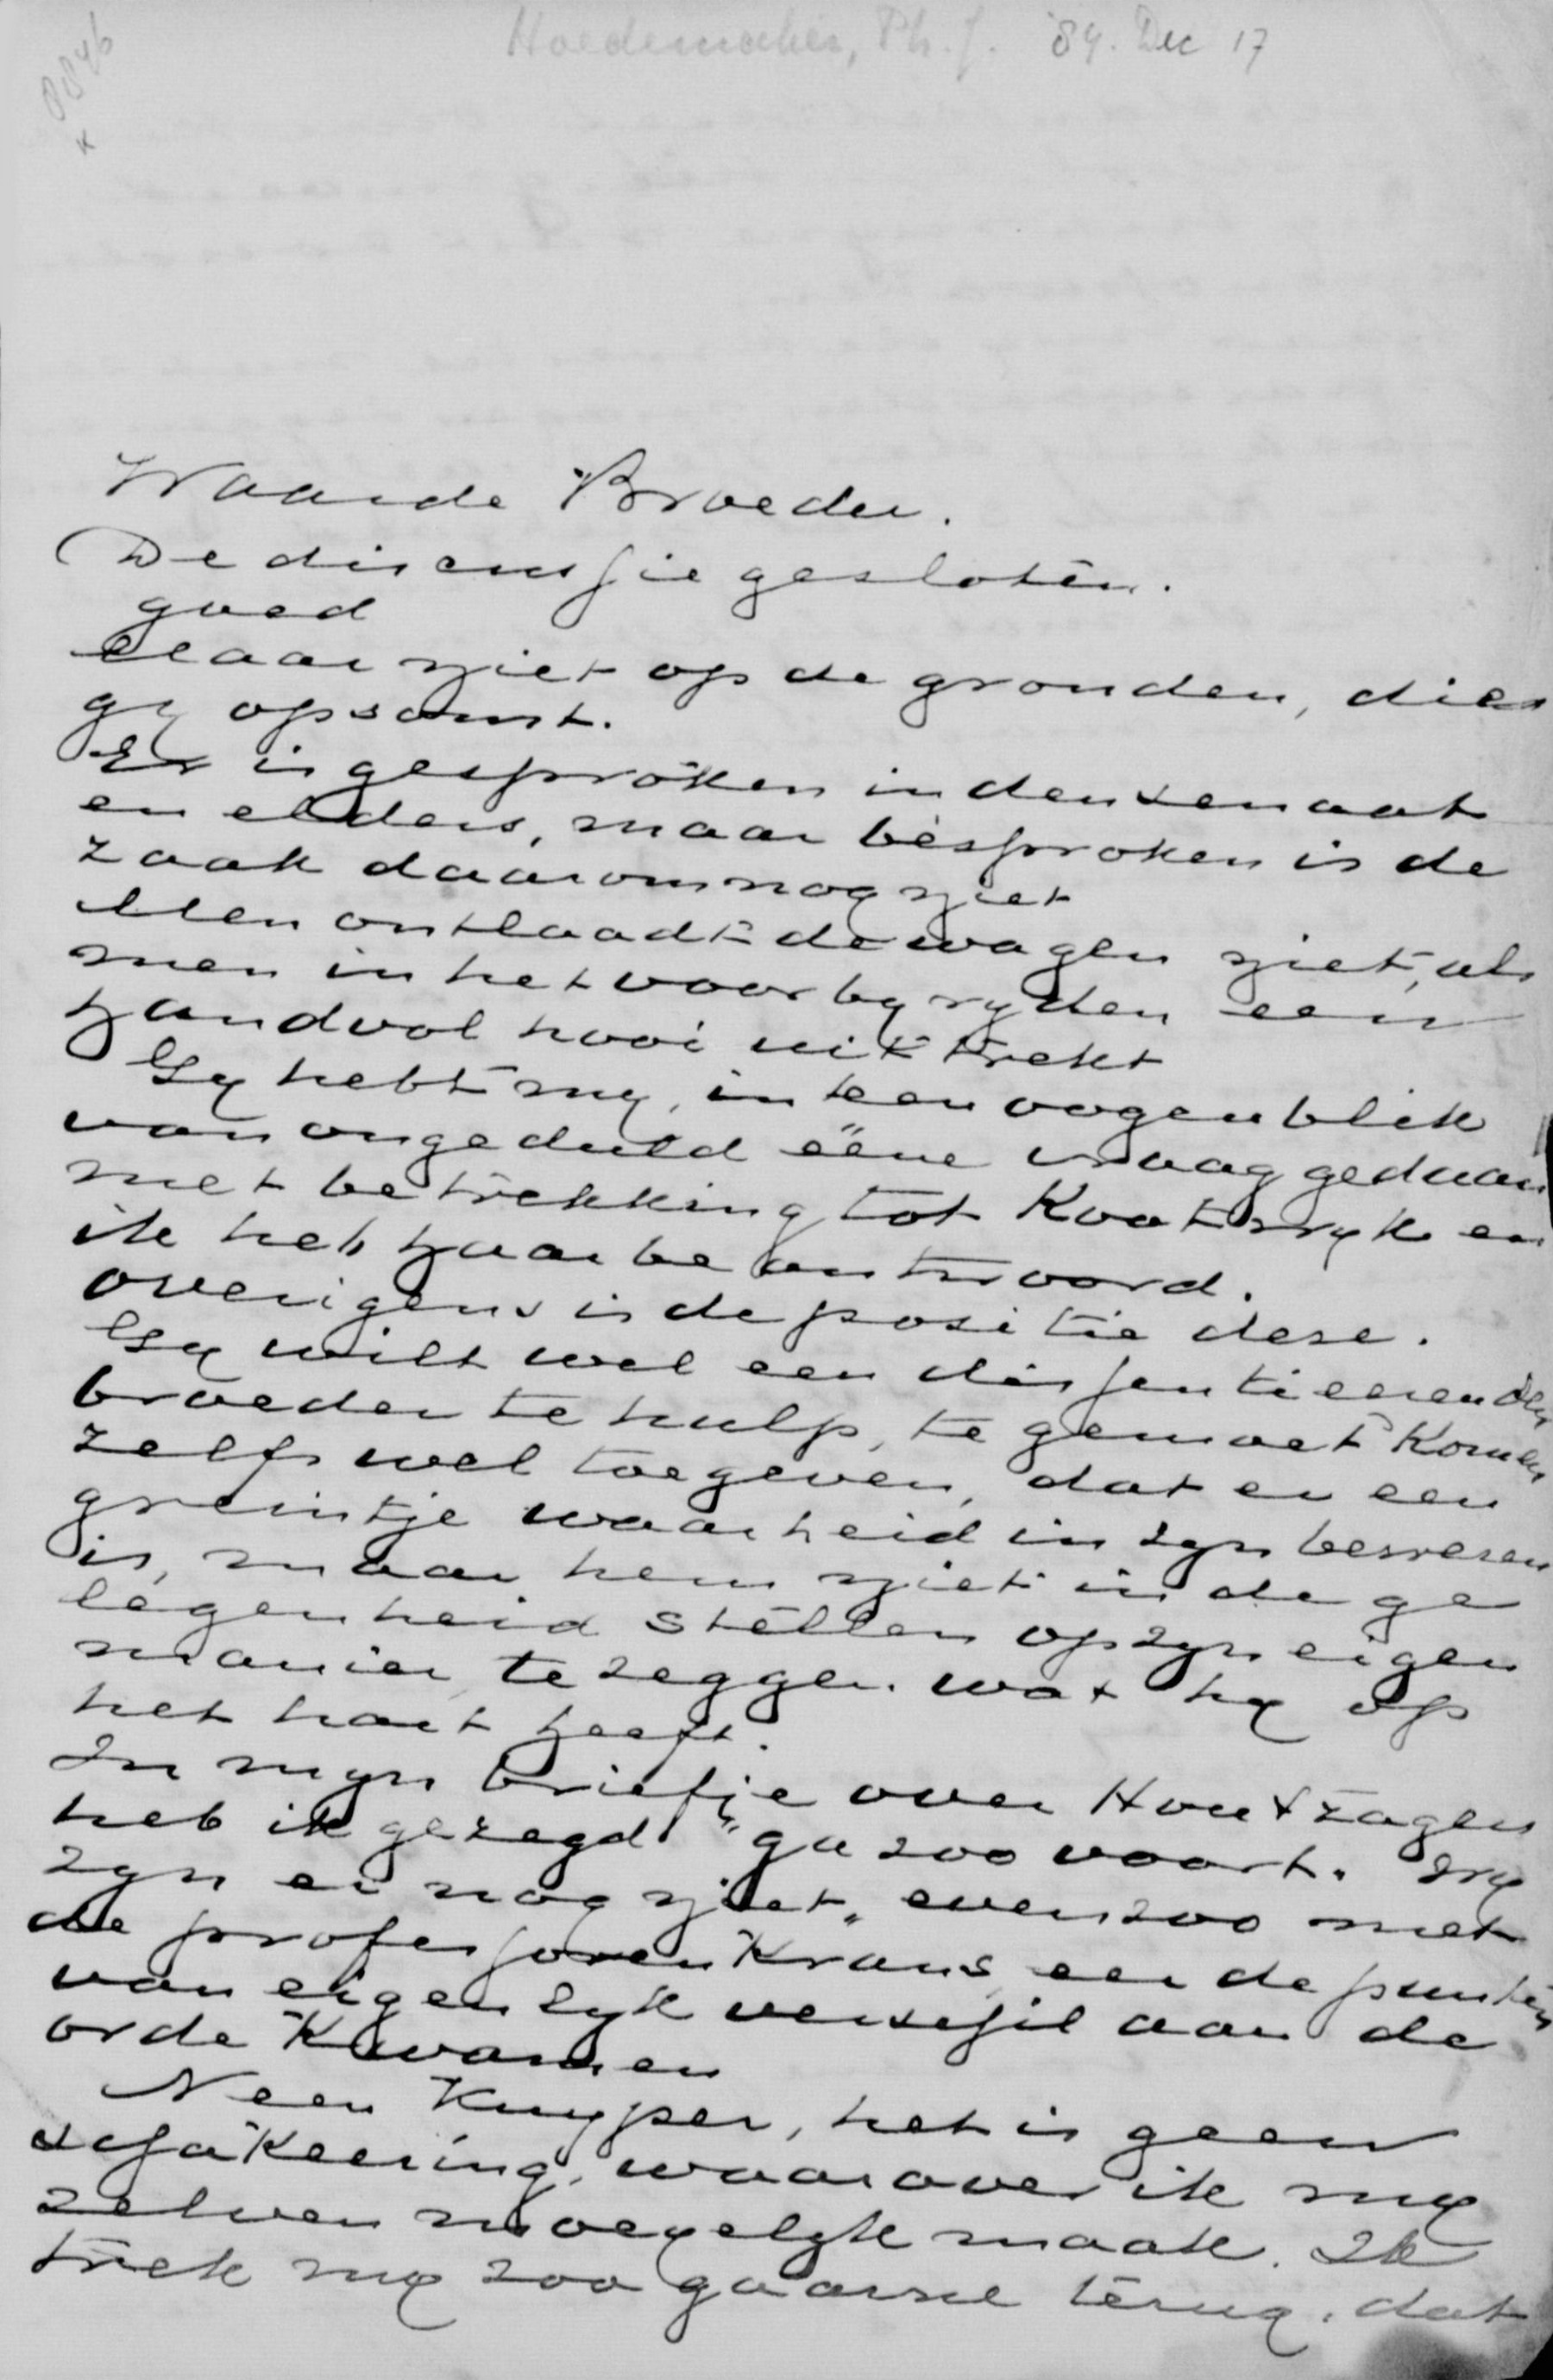 Hoedemaker, Ph. J. '89. Dec 17
Waarde Broeder.
De discussie gesloten.
goed
Maar niet op de gronden, die
gy opsomt.
Er is gesproken in den senaat
en elders, maar besproken is de
zaak daarom nog niet
Men ontlaadt de wagen niet, als
men in het voorby ryden een
handvol hooi uit trekt
Gy hebt my, in een oogenblik
van ongeduld ééne vraag gedaan
met betrekking tot Kootwyk en
ik heb haar beantwoord.
overigens is de positie deze.
Gy wilt wel een dissentieerenden
broeder te hulp, te gemoet komen
zelfs wel toegeven, dat er een
greintje waarheid in zyn bezwaren
is, maar hem niet in de ge
legenheid stellen op zyn eigen
manier te zeggen wat hy op
het hart heeft.
In myn briefje over Houtzagers
heb ik gezegd "ga zoo voort. Wy
zyn er nog niet" evenzoo met
de professoren Krans, eer de punten
van eigenlyk verschil aan de
orde kwamen
Neen Kuyper, het is geen
schakeering, waarover ik my
zelven moeyelyk maak. Ik
trek my zoo gaarne terug, dat